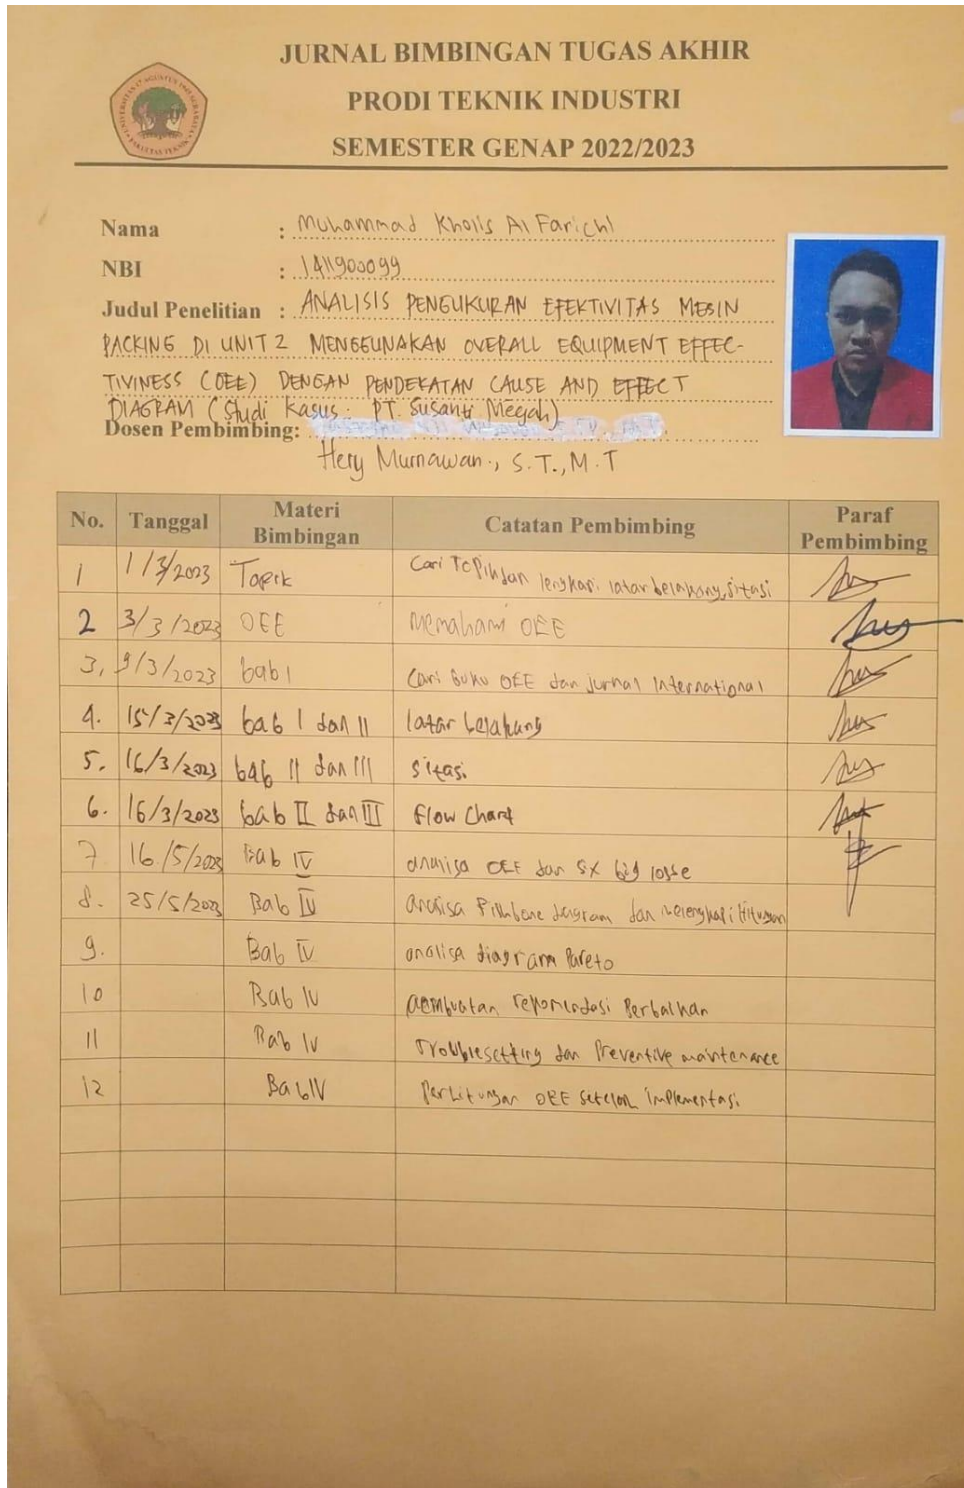 JURNAL BIMBINGAN TUGAS AKHIR
PRODI TEKNIK INDUSTRI
SEMESTER GENAP 2022/2023
Nama : Muhammad Kholis Al Farichi
NBI : 1411900099
Judul Penelitian : ANALISIS PENGUKURAN EFEKTIVITAS MESIN
PACKING DI UNIT 2 MENGGUNAKAN OVERALL EQUIPMENT EFFEC-
TIVINESS (OEE) DENGAN PENDEKATAN CAUSE AND EFFECT
DIAGRAM (Studi Kasus : PT. Susanti Megah)
Dosen Pembimbing:
Hery Murnawan., S.T., M.T
No. Tanggal Materi Bimbingan Catatan Pembimbing Paraf Pembimbing
1 1/3/2023 Topik Cari Topik dan lengkapi latar belakang, sitasi
2 3/3/2023 OEE Memahami OEE
3, 9/3/2023 bab 1 Cari Buku OEE dan jurnal International
4. 15/3/2023 bab I dan II latar belakang
5. 16/3/2023 bab II dan III sitasi
6. 16/3/2023 bab II dan III flow Chart
7 16/5/2023 Bab IV analisa OEE dan sx big losse
8. 25/5/2023 Bab IV analisa Fishbone diagram dan melengkapi Hitungan
9. Bab IV analisa diagram Pareto
10 Bab IV pembuatan rekomendasi Perbaikan
11 Bab IV Troublesetting dan Preventive maintenance
12 Bab IV Perhitungan OEE setelah implementasi